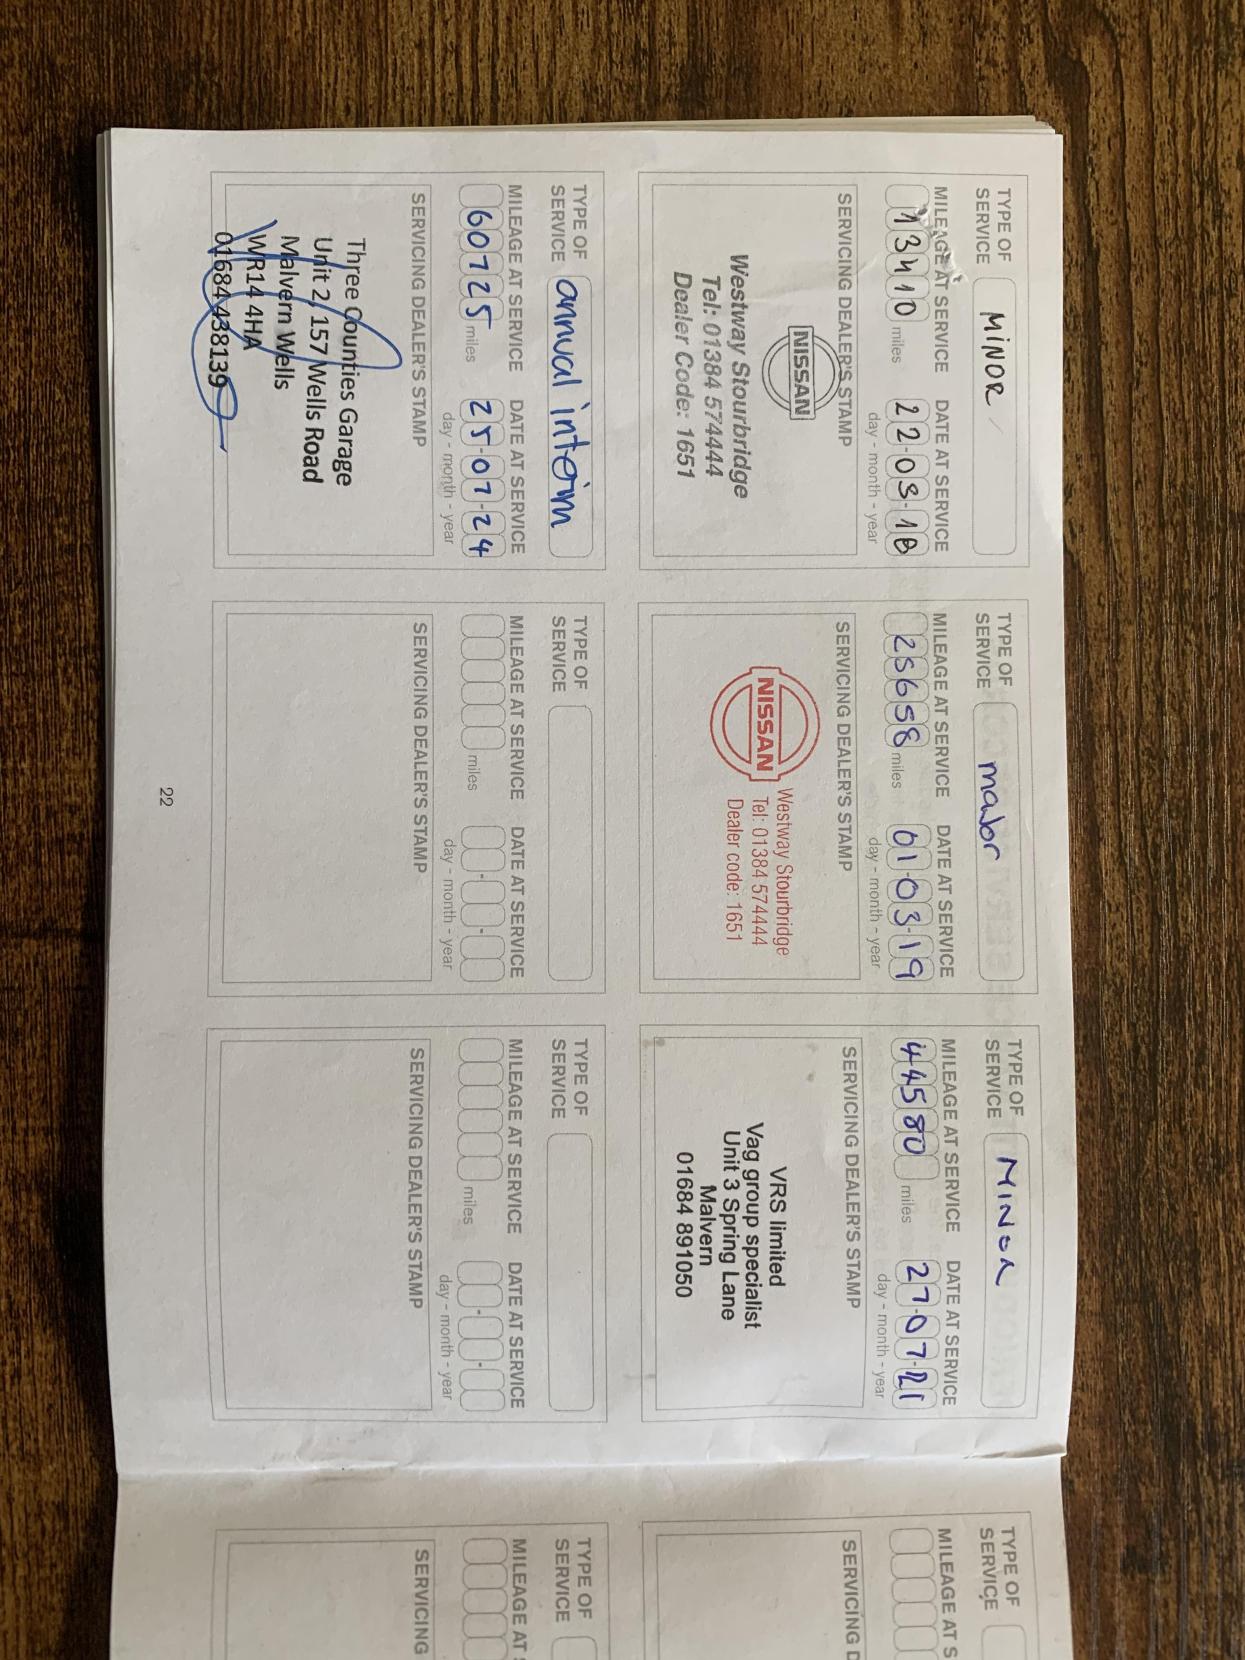 TYPE OF
SERVICE
MINOR
MILEAGE AT SERVICE
DATE AT SERVICE
13410 miles
22-03-18
day - month - year
SERVICING DEALER'S STAMP
NISSAN
Westway Stourbridge
Tel: 01384 574444
Dealer Code: 1651
TYPE OF
SERVICE
major
MILEAGE AT SERVICE
DATE AT SERVICE
25658 miles
01-03-19
day - month - year
SERVICING DEALER'S STAMP
NISSAN
Westway Stourbridge
Tel: 01384 574444
Dealer code: 1651
TYPE OF
SERVICE
MINOR
MILEAGE AT SERVICE
DATE AT SERVICE
44580 miles
27-07-21
day - month - year
SERVICING DEALER'S STAMP
VRS limited
Vag group specialist
Unit 3 Spring Lane
Malvern
01684 891050
TYPE OF
SERVICE
annual interim
MILEAGE AT SERVICE
DATE AT SERVICE
60725 miles
25-07-24
day - month - year
SERVICING DEALER'S STAMP
Three Counties Garage
Unit 2, 157 Wells Road
Malvern Wells
WR14 4HA
01684 438139
TYPE OF
SERVICE
MILEAGE AT SERVICE
DATE AT SERVICE
miles
day - month - year
SERVICING DEALER'S STAMP
TYPE OF
SERVICE
MILEAGE AT SERVICE
DATE AT SERVICE
miles
day - month - year
SERVICING DEALER'S STAMP
22
TYPE OF
SERVICE
MILEAGE AT S
SERVICING D
TYPE OF
SERVICE
MILEAGE AT S
SERVICING